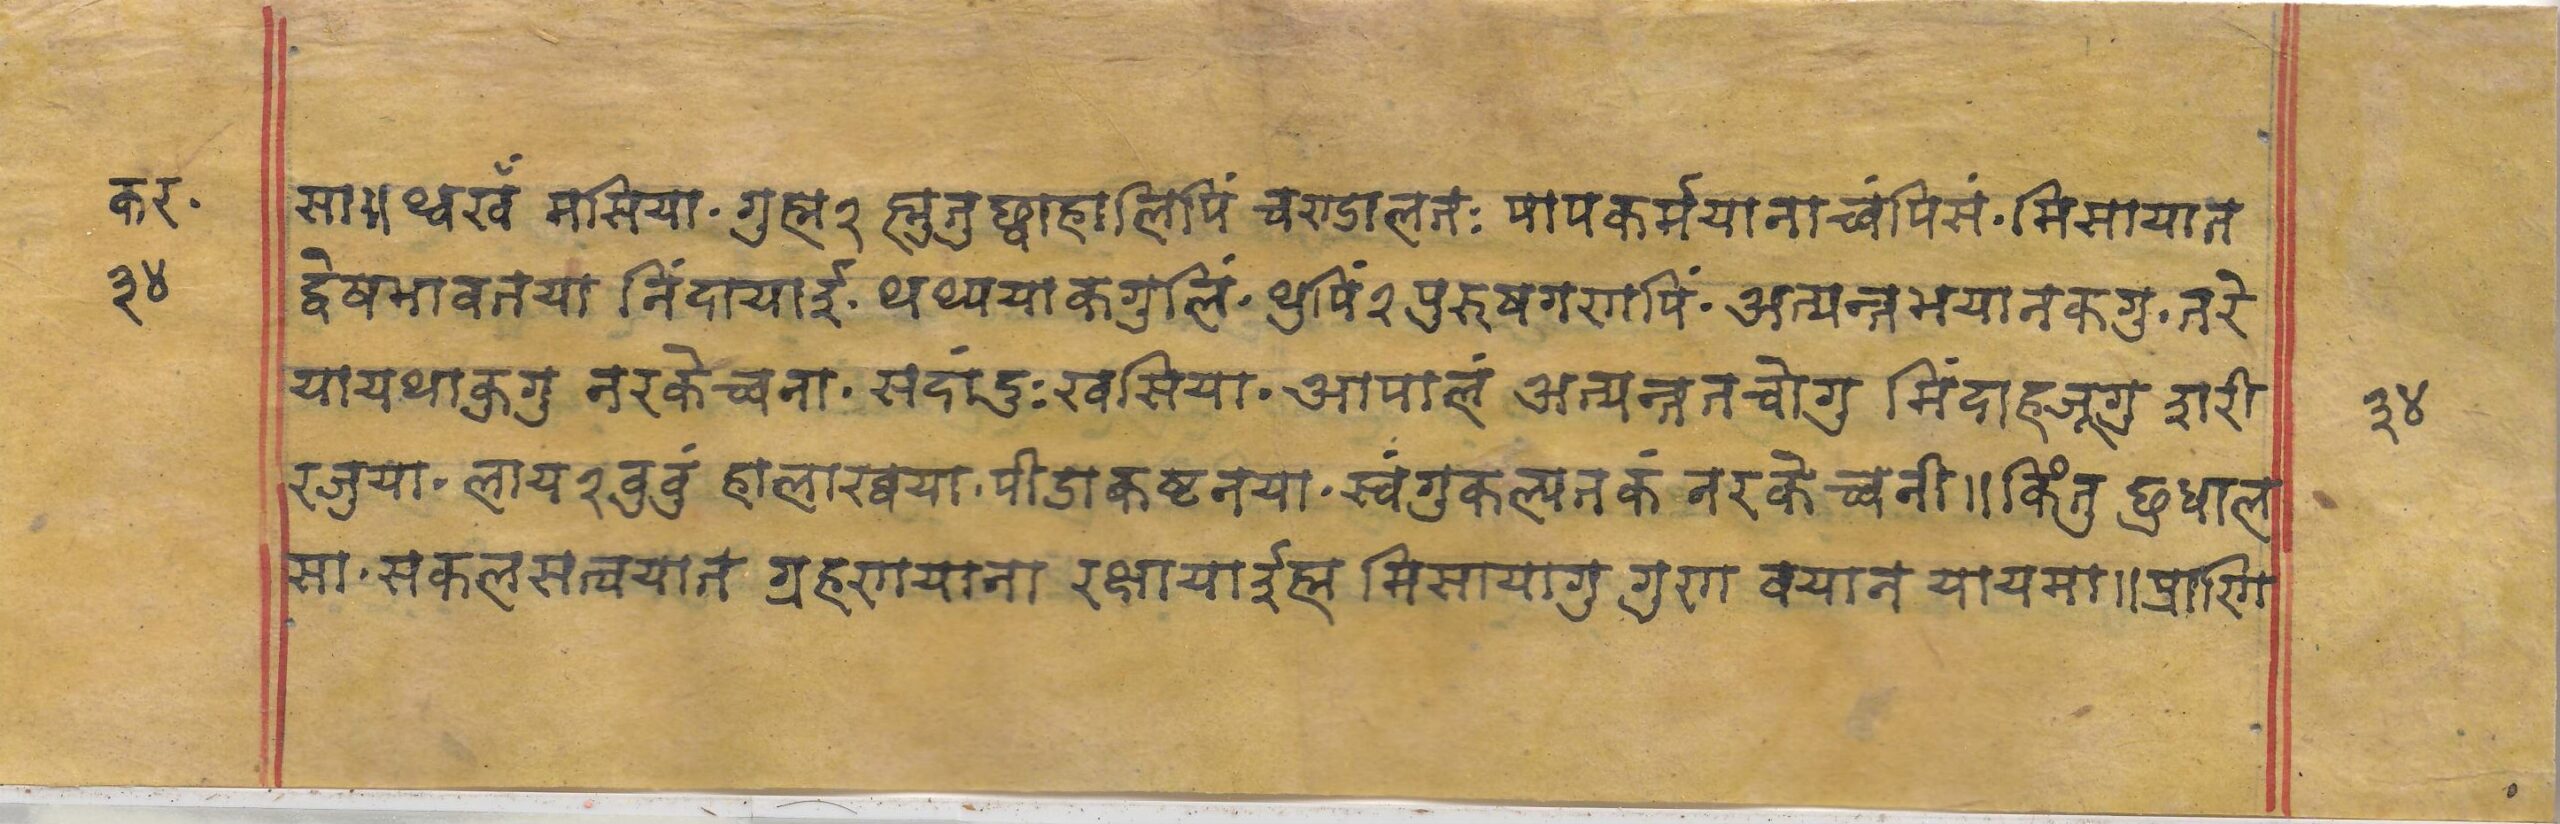 कर. सा॥ थ्वखँ मसिया. गुह्म२ ह्मुतुछ्वाहालिपिं चण्डालतः पापकर्मयानाच्वंपिसं. मिसायात
३४ द्वेषभावतया निंदायाई. थथ्ययाकगुलिं. थुपिं२ पुरुषगणपिं. अत्यन्तभयानकगु. तरे
यायथाकुगु नरकेच्वना. सदां दुःखसिया. आपालं अत्यन्ततचोगु मिंदाहजूगु शरी ३४
रजुया. लाय२वुवुं हालाखयया. पीडाकष्टनया. स्वंगुकल्पतकं नरकेच्वनी॥ किंतु छुधाल
सा. सकलसत्वयात ग्रहणयाना रक्षायाईह्म मिसायागु गुण बयान यायमा॥ प्राणि